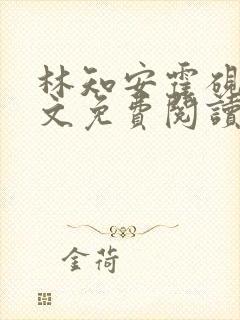 林知安霍硯
文免費閱讀
金荷